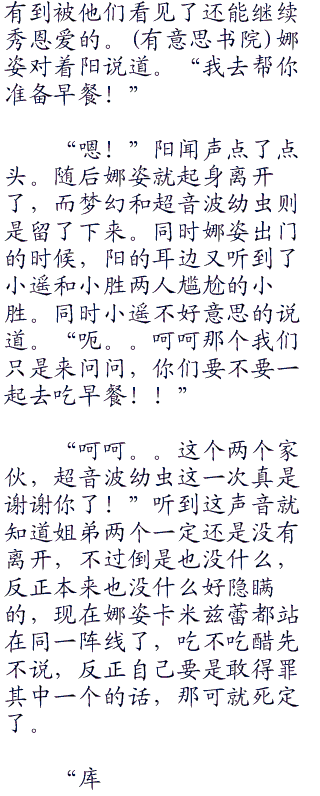 有到被他们看见了还能继续
秀恩爱的。(有意思书院)娜
姿对着阳说道。“我去帮你
准备早餐！”
“嗯！”阳闻声点了点
头。随后娜姿就起身离开
了，而梦幻和超音波幼虫则
是留了下来。同时娜姿出门
的时候，阳的耳边又听到了
小遥和小胜两人尴尬的小
胜。同时小遥不好意思的说
道。“呃。。呵呵那个我们
只是来问问，你们要不要一
起去吃早餐！！”
“呵呵。。这个两个家
伙，超音波幼虫这一次真是
谢谢你了！”听到这声音就
知道姐弟两个一定还是没有
离开，不过倒是也没什么，
反正本来也没什么好隐瞒
的，现在娜姿卡米兹蕾都站
在同一阵线了，吃不吃醋先
不说，反正自己要是敢得罪
其中一个的话，那可就死定
了。
“库